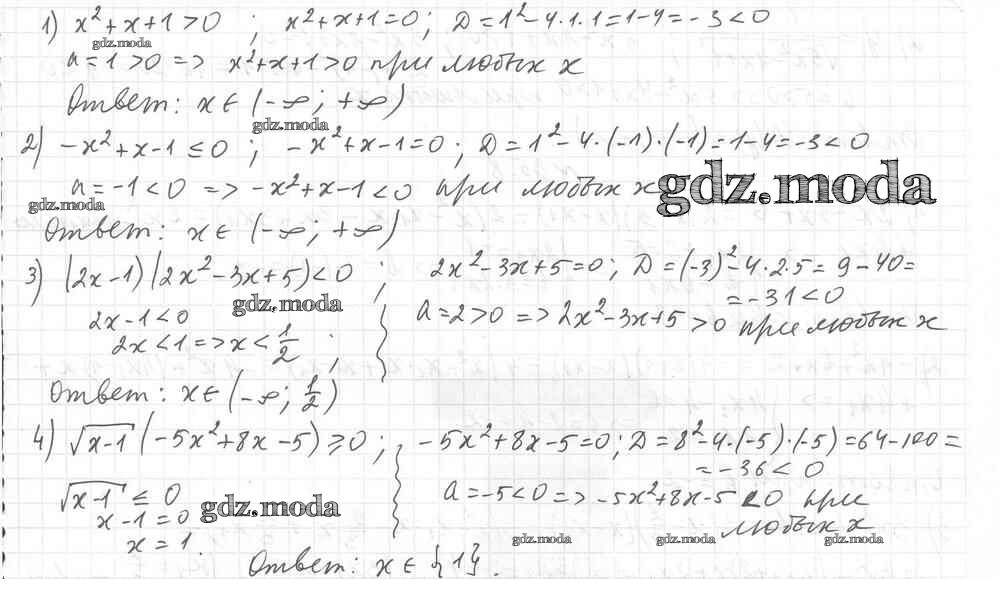 1) x²+x+1>0 ; x²+x+1=0; D=1²-4·1·1=1-4=-3<0
gdz.moda
a=1>0 => x²+x+1>0 при любых x
Ответ: x∈(-∞; +∞)
gdz.moda
2) -x²+x-1≤0 ; -x²+x-1=0 ; D=1²-4·(-1)·(-1)=1-4=-3<0
a=-1<0 => -x²+x-1<0 при любых x
gdz.moda
gdz.moda
Ответ: x∈(-∞; +∞)
3) (2x-1)(2x²-3x+5)<0 ; 2x²-3x+5=0; D=(-3)²-4·2·5=9-40=
=-31<0
gdz.moda
2x-1<0
a=2>0 => 2x²-3x+5>0 при любых x
2x<1=>x<1/2 ;
Ответ: x∈(-∞; 1/2)
4) √x-1 (-5x²+8x-5)≥0 ; -5x²+8x-5=0; D=8²-4·(-5)·(-5)=64-100=
=-36<0
√x-1 ≤ 0
a=-5<0=>-5x²+8x-5<0 при
gdz.moda
x-1=0
любых x
x=1.
gdz.moda
gdz.moda
gdz.moda
Ответ: x∈{1}.